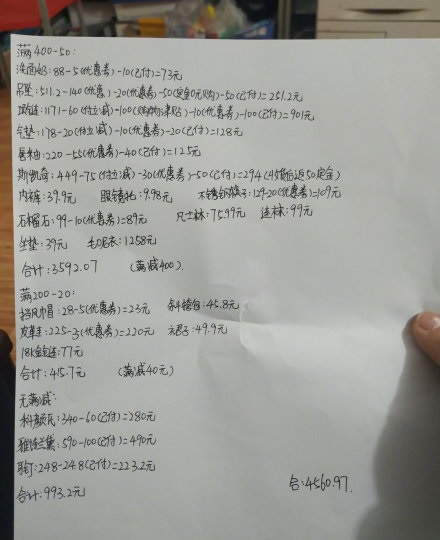 满400-50:
洗面奶:88-5(优惠券)-10(已付)=73元
吊坠:511.2-140(优惠)-20(优惠券)-50(定金0元购)-50(已付)=251.2元
项链:1171-60(付立减)-100(购物津贴)-10(优惠券)-100(已付)=901元
气垫:178-20(付立减)-10(优惠券)-20(已付)=128元
唇釉:220-55(优惠券)-40(已付)=125元
斯凯奇:449-75(付立减)-30(优惠券)-50(已付)=294(付尾后返50定金)
内裤:39.9元 眼镜 9.98元 不锈钢 129-20(优惠券)=109元
石榴石:99-10(优惠券)=89元 尺士林:75.99元 连袜:99元
坐垫:39元 毛呢衣:1258元
合计:3592.07 (满减400).
满200-20:
挡风帽:28-5(优惠券)=23元 斜挎包:45.8元
皮鞋:225-3(优惠券)=220元 裙子:49.9元
18k金链:77元
合计:415.7元 (满减40元)
无满减:
科颜氏:340-60(已付)=280元
雅诗兰黛:590-100(已付)=490元
鞋:248-24.8(已付)=223.2元
合计:993.2元
合:4560.97.